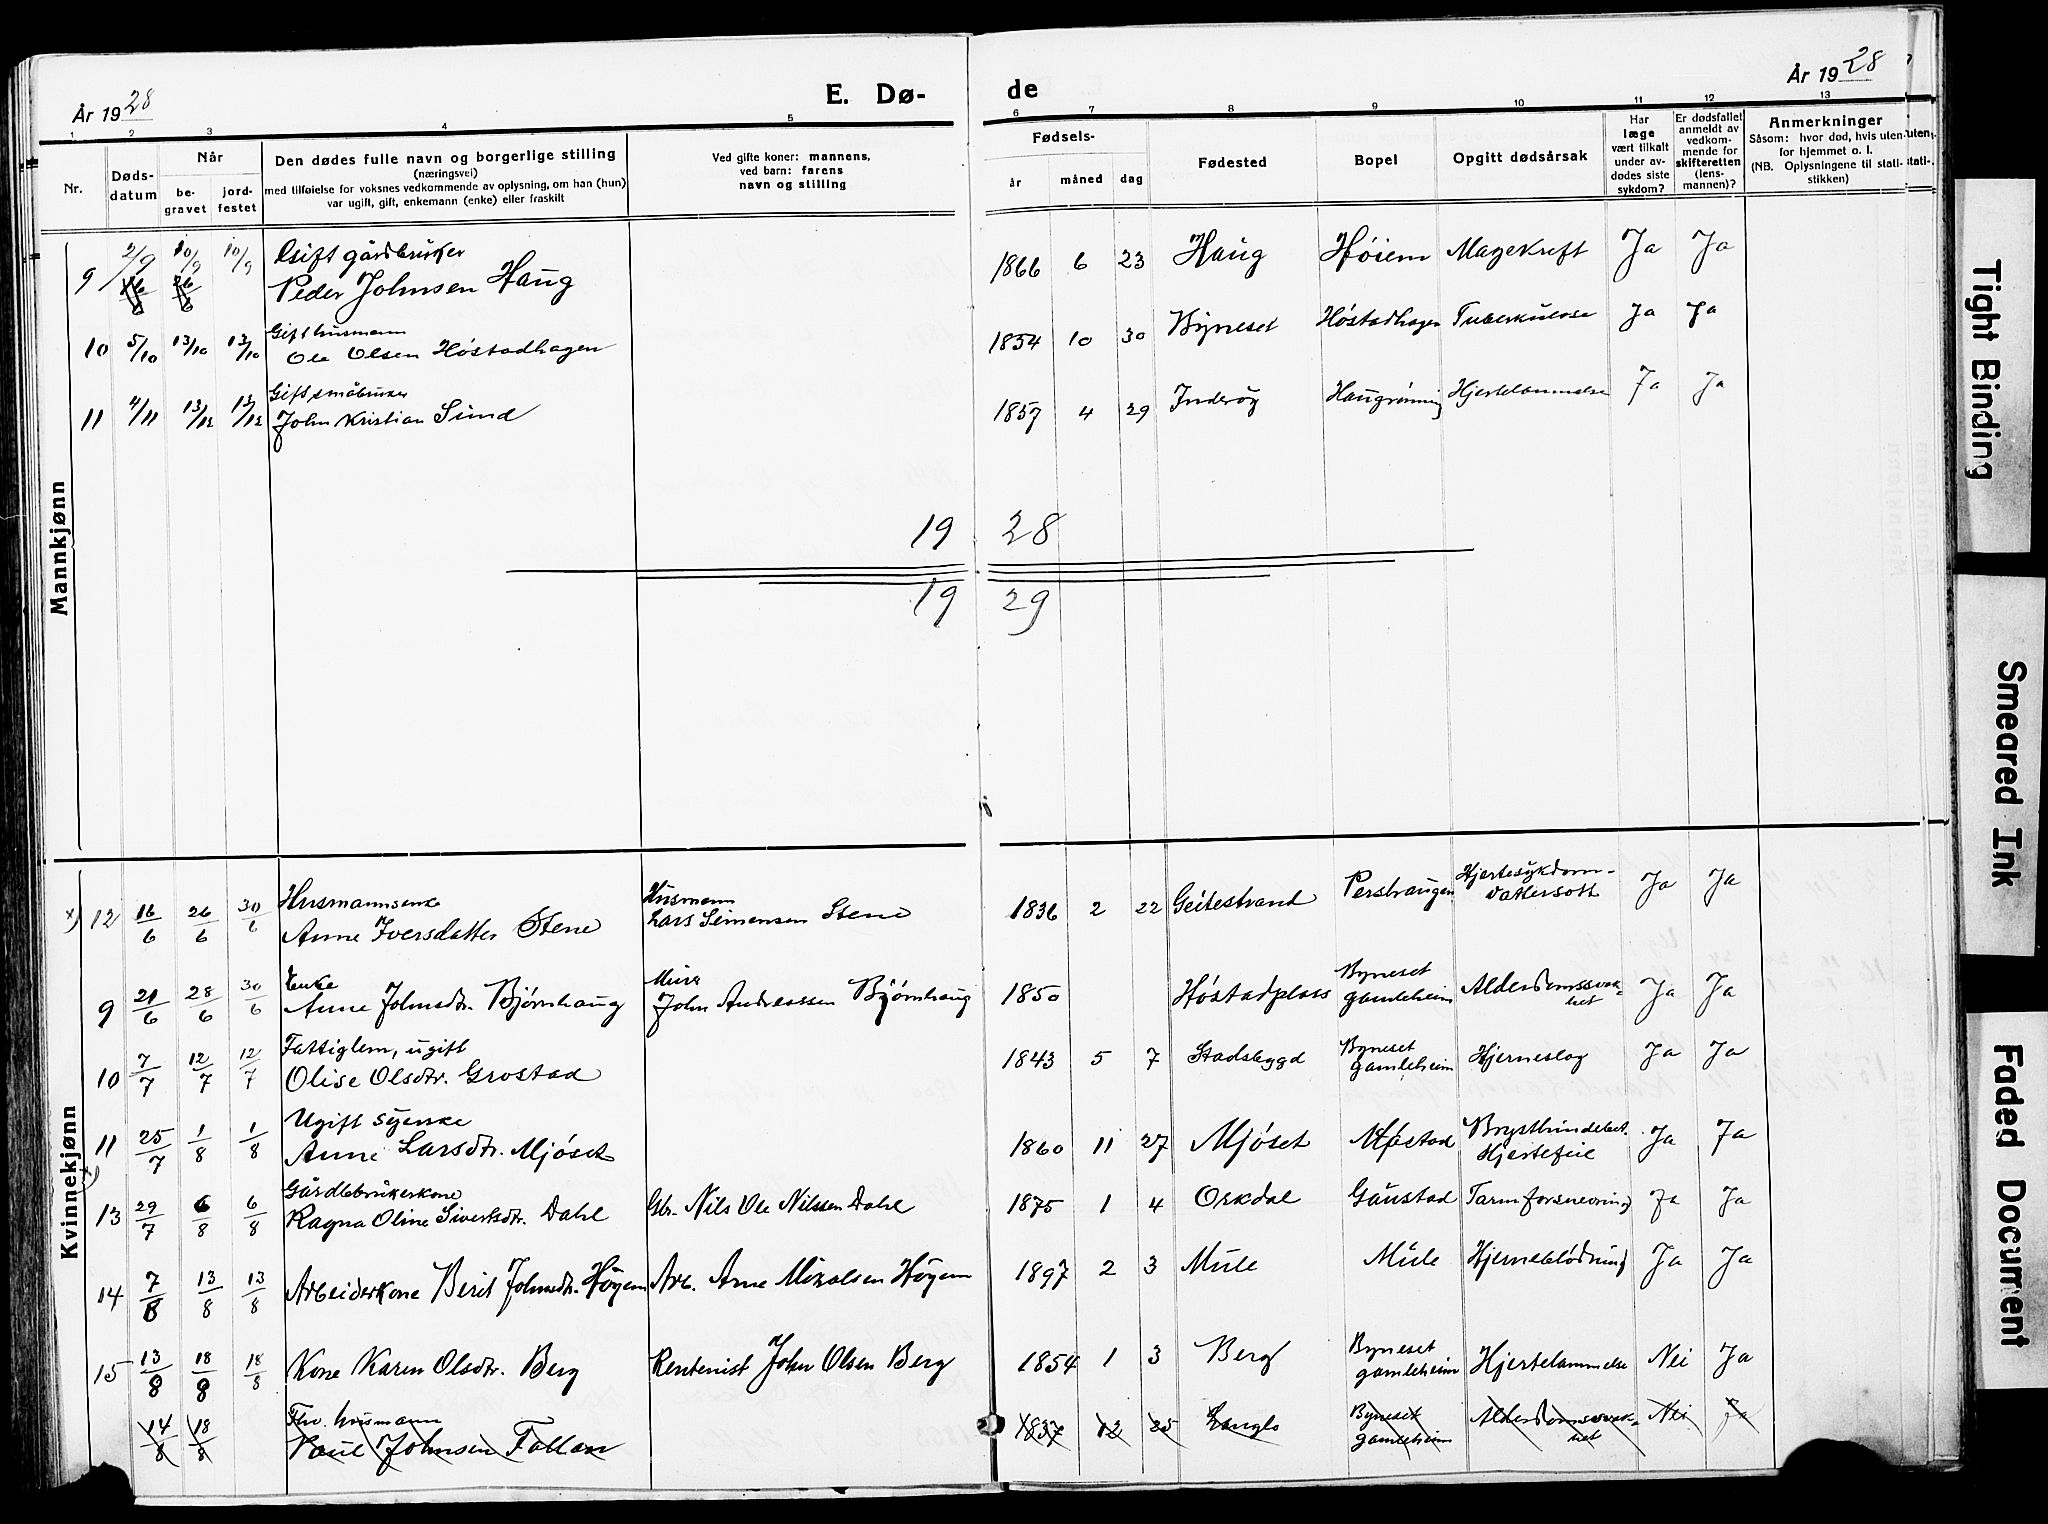 År 1928
E. Dø-
de
År 1928
1 2 3 4 5 6 7 8 9 10 11 12 13
Nr.
Døds-
datum
Når
be-
gravet
jord-
festet
Den dødes fulle navn og borgerlige stilling
(næringsvei)
med tilføielse for voksnes vedkommende av oplysning, om han (hun)
var ugift, gift, enkemann (enke) eller fraskilt
Ved gifte koner: mannens,
ved barn: farens
navn og stilling
Fødsels-
år måned dag
Fødested
Bopel
Opgitt dødsårsak
Har
læge
vært tilkalt
under av-
dødes siste
sykdom?
Er dødsfallet
anmeldt av
vedkom-
mende for
skifteretten
(lens-
mannen)?
Anmerkninger
Såsom: hvor død, hvis uten-
for hjemmet o. l.
(NB. Oplysningene til stati-
stikken)
Mannkjønn
9 2/9 10/9 10/9 Gift gårdbruker
Peder Johnsen Haug 1866 6 23 Haug Höiem Magekreft Ja Ja
10 5/10 13/10 13/10 Gift husmann
Ole Olsen Höstadhagen 1854 10 30 Byneset Höstadhagen Tuberkulose Ja Ja
11 4/11 13/12 13/12 Gift småbruker
John Kristian Sund 1857 4 29 Inderöy Haugrönning Hjertelammelse Ja Ja
19 28
19 29
Kvinnekjønn
x) 12 16/6 26/6 30/6 Husmannsenke
Anne Iversdatter Stene
Husmann
Lars Simensen Stene 1836 2 22 Geitestrand Pershaugen Hjertesykdom-
vattersott Ja Ja
9 21/6 28/6 30/6 Enke
Anne Johnsdtr. Bjørnhaug
Murer
John Andreassen Bjørnhaug 1850 Höstadplass Byneset
gamleheim Alderdomssvak-
het Ja Ja
10 7/7 12/7 12/7 Fattiglem, ugift
Olise Olsdtr. Grostad 1843 5 7 Stadsbygd Byneset
gamleheim Hjerneslag Ja Ja
11 25/7 1/8 1/8 Ugift syerske
Anne Larsdtr. Mjöset 1860 11 27 Mjöset Möstad Brysthindebet.
Hjertefeil Ja Ja
x) 13 29/7 6/8 6/8 Gårdbrukerkone
Ragna Oline Sivertsdtr. Dahl Gbr. Nils Ole Nilssen Dahl 1875 1 4 Orkdal Gaustad Tarmforsnevring Ja Ja
14 7/8 13/8 13/8 Arbeiderkone Berit Johnsdtr. Höyem Arb. Arne Mikalsen Höyem 1897 2 3 Mule Mule Hjerneblödning Ja Ja
15 13/8 18/8 18/8 Kone Karen Olsdtr. Berg Rentenist John Olsen Berg 1854 1 3 Berg Byneset
gamleheim Hjertelammelse Nei Ja
14/8 18/8 Fhv. husmann
Paul Johnsen Fallan 1837 12 25 Langlo Byneset
gamleheim Alderdomssvak-
het Nei Ja
Tight Binding
Smeared Ink
Faded Document